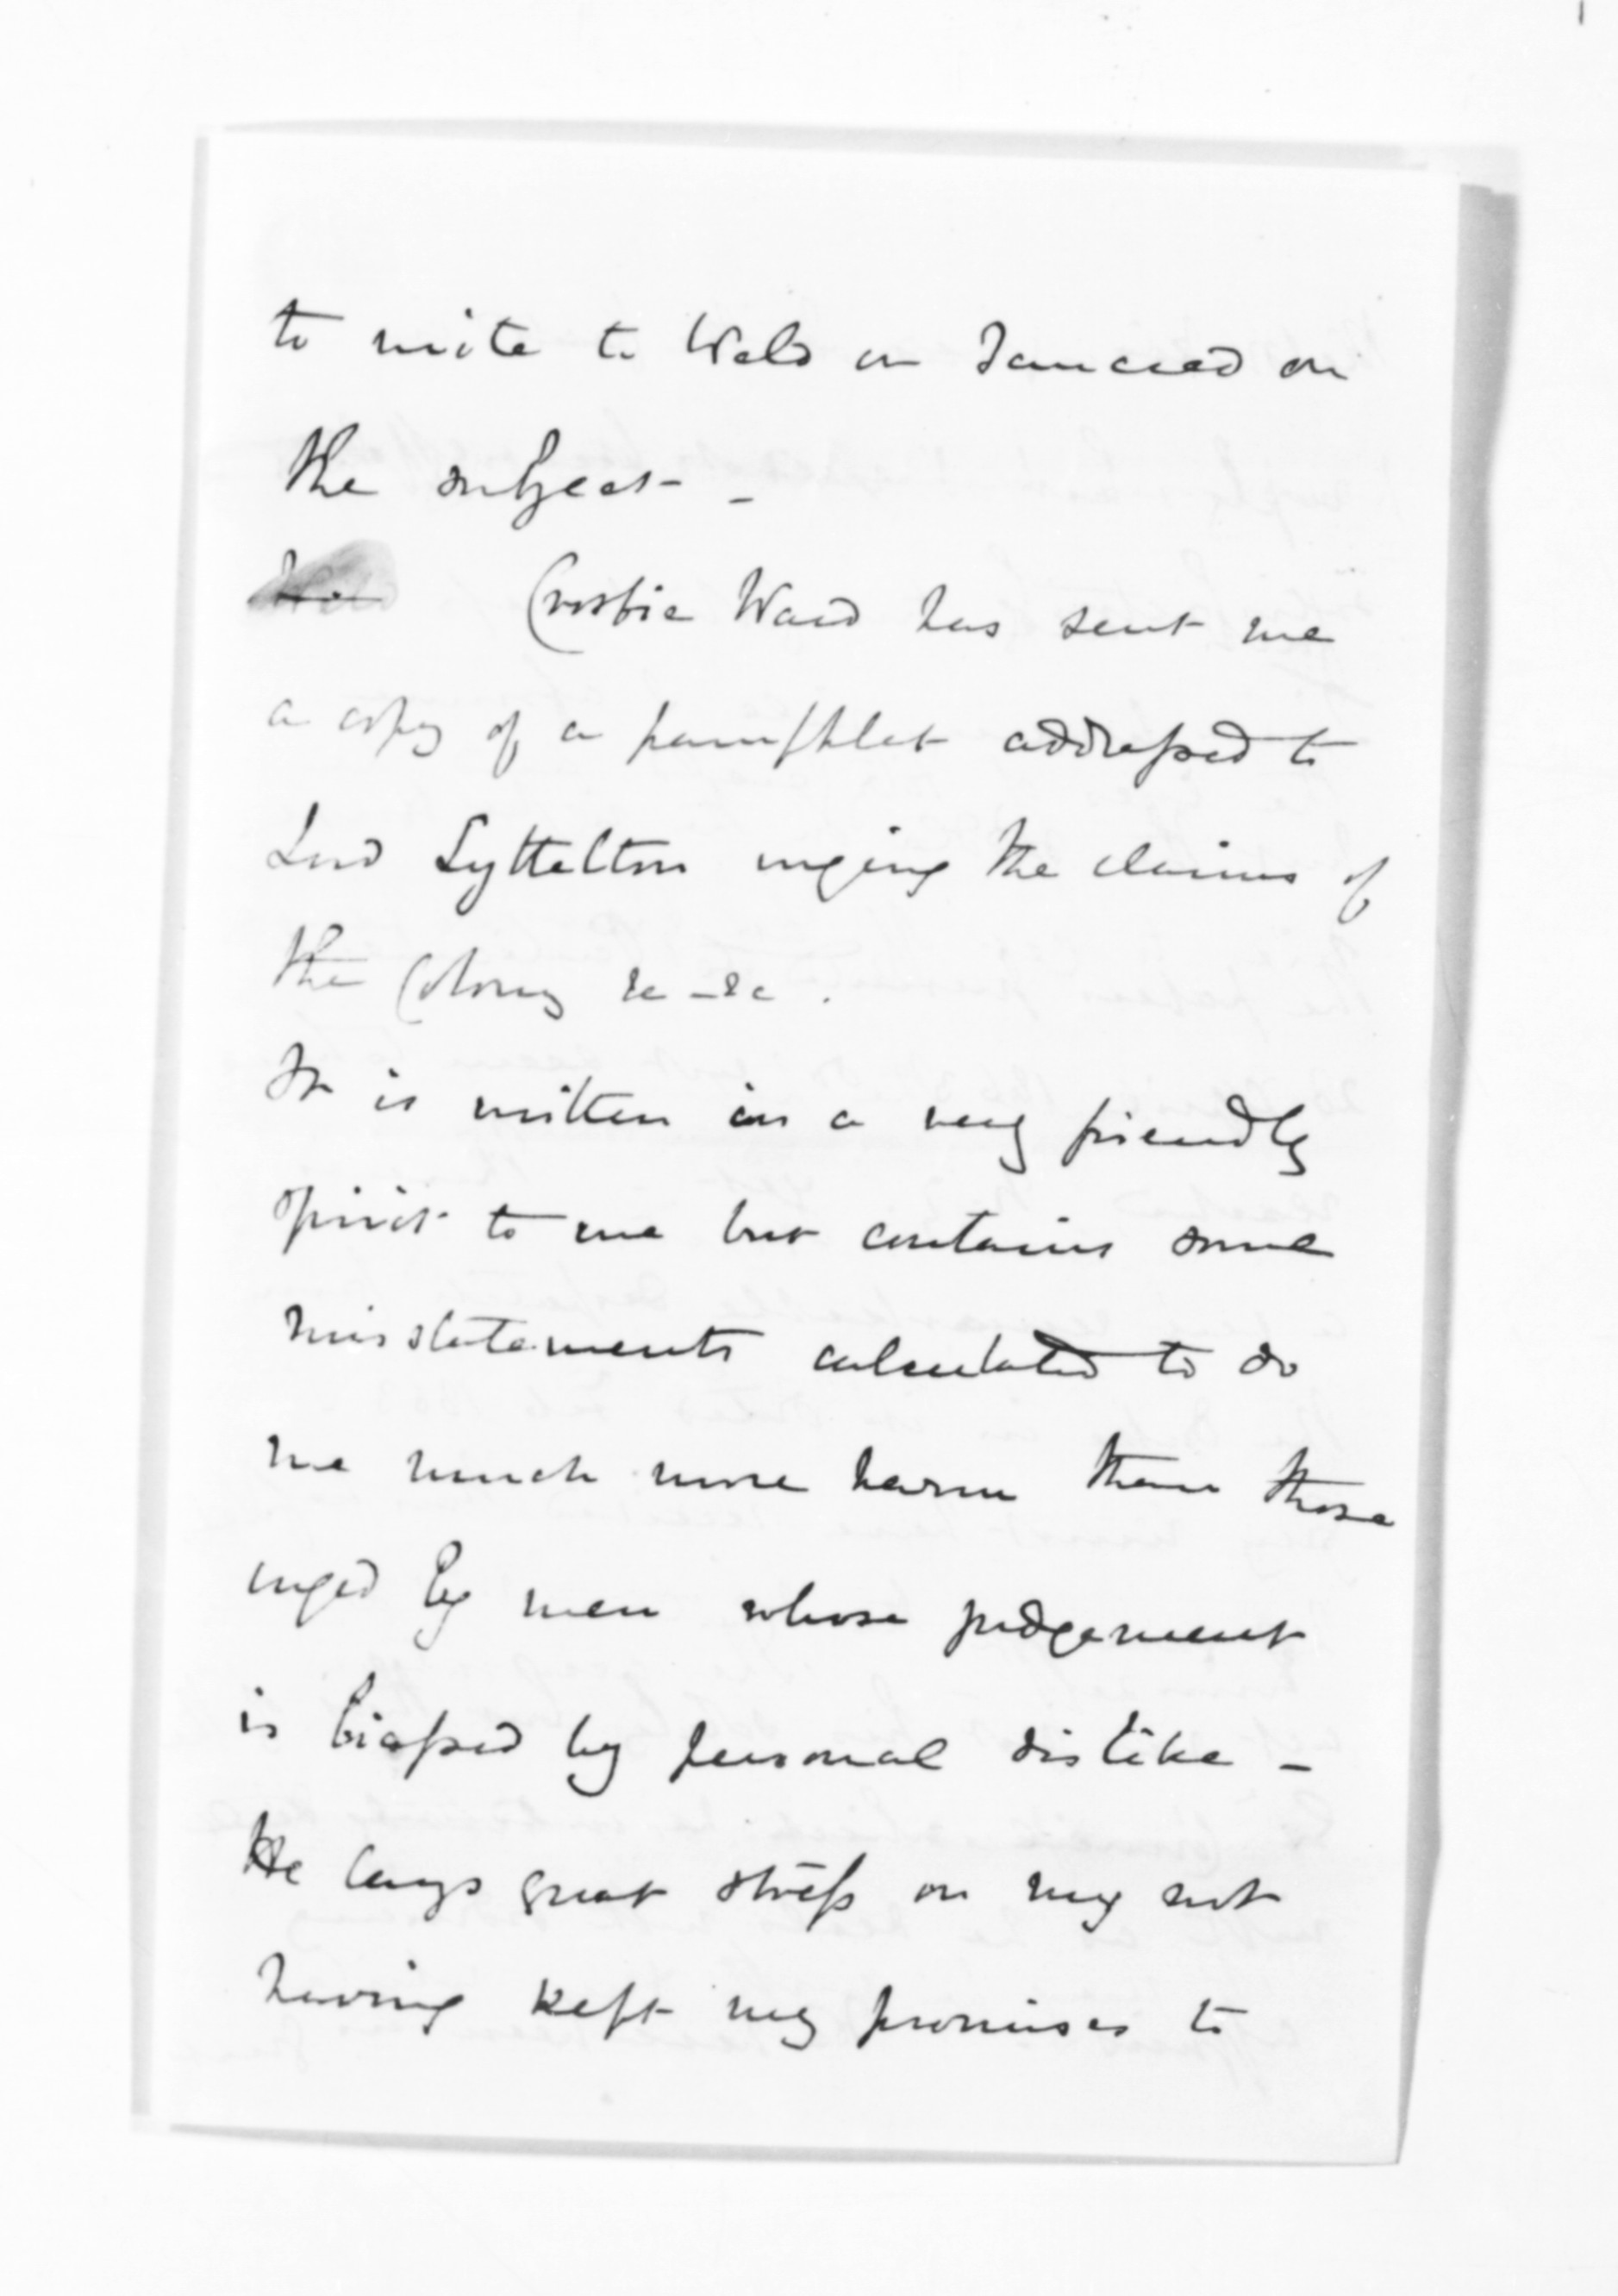 to write to Weld or Tancred on
the subject -
Crosbie Ward has sent me
a copy of a pamphlet addressed to
Lord Lyttelton urging the claims of
the Colony &c - &c .
It is written in a very friendly
spirit to me but contains some
misstatements calculated to do
me much more harm than those
urged by men whose judgement
is biassed by personal dislike -
He lays great stress on my not
having kept my promises to